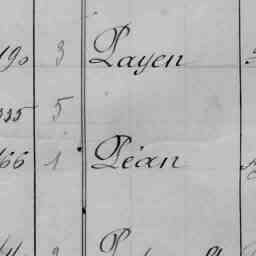 190 3 Payen
335 5
166 1 Péan